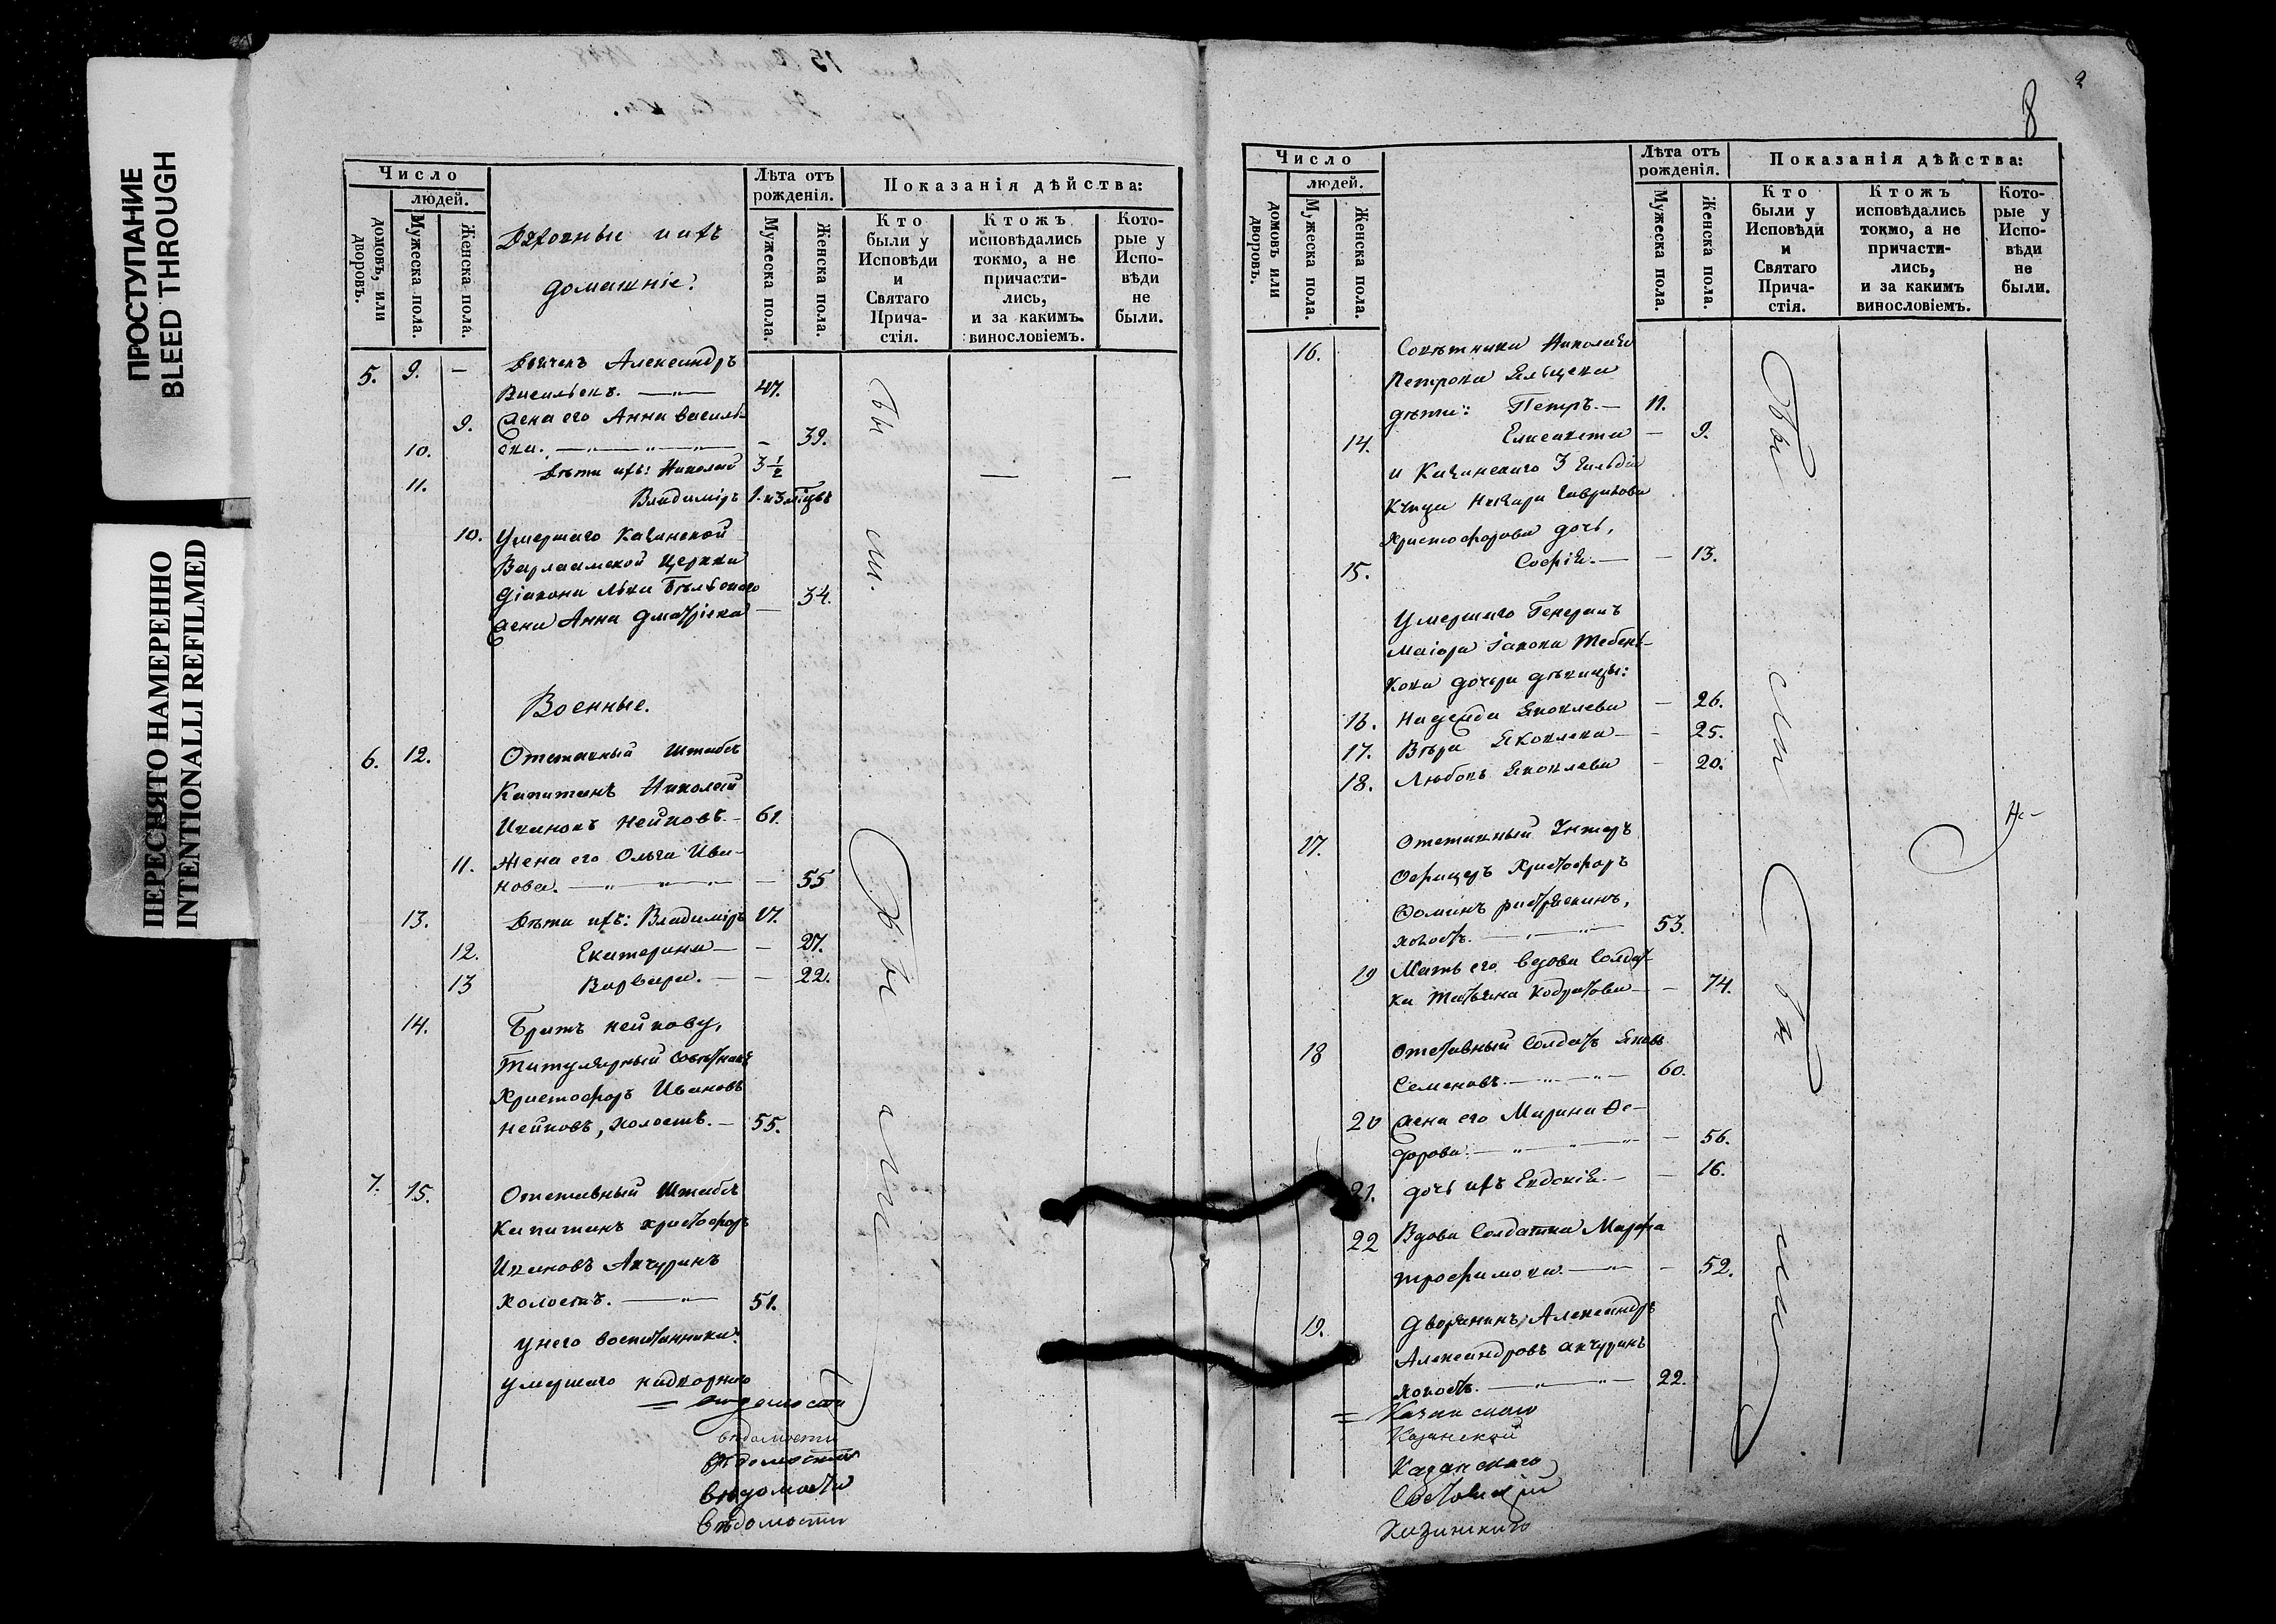 ПРОСТУПАНИЕ
BLEED THROUGH
ПЕРЕСНЯТО НАМЕРЕННО
INTENTIONALLI REFILMED
Число
домовъ, или дворовъ.
людей.
Мужеска пола.
Женска пола.
Духовные и ихъ
домашніе:
Лѣта отъ рожденія.
Мужеска пола.
Женска пола.
Показанія дѣйства:
Кто были у Исповѣди и Святаго Прича-стія.
Ктожъ исповѣдались токмо, а не причасти-лись, и за какимъ винословіемъ.
Кото-рые у Испо-вѣди не были.
5. 9. — Александръ
Васильевъ. — 47.
9. Жена его Анна Василь-
ева. — 39.
10. Дѣти ихъ: Николай 3 1/2
11. Владиміръ 1. и 3 мѣсяцъ
10. Умершаго Казанской
Варлаамской Церкви
Діакона Льва Бѣльскаго
жена Анна Дмитріева — 34.
бы
ли.
Военные.
6. 12. Отставный Штабсъ
Капитанъ Николай
Ивановъ Нейковъ. — 61.
11. Жена его Ольга Ива-
нова. — 55
13. Дѣти ихъ: Владиміръ 17.
12. Екатерина — 27.
13 Варвара. — 22.
14. Братъ Нейкову,
Титулярный Совѣтникъ
Христофоръ Ивановъ
Нейковъ, холостъ. — 55.
7. 15. Отставный Штабсъ
Капитанъ Христофоръ
Ивановъ Акчуринъ
холостъ. — 51.
у него воспитанники:
умершаго надворнаго
бы
ли
= вѣдомости
вѣдомости
вѣдомости
вѣдомости
вѣдомости
2
8
Число
домовъ или дворовъ.
людей.
Мужеска пола.
Женска пола.
Лѣта отъ рожденія.
Мужеска пола.
Женска пола.
Показанія дѣйства:
Кто были у Исповѣди и Святаго Прича-стія.
Ктожъ исповѣдались токмо, а не причасти-лись, и за какимъ винословіемъ.
Кото-рые у Испо-вѣди не были.
16. Совѣтника Николая
Петрова Ельцева
дѣти: Петръ. — 11.
14. Елисавета — 9.
и Казанскаго 3 Гильдіи
Купца Назара Гаврилова
Христофорова дочь,
15. Софія. — 13.
Умершаго Генералъ
Маіора Іакова Тебень-
кова дочери дѣвицы:
16. Надежда Яковлева — 26.
17. Вѣра Яковлева — 25.
18. Любовь Яковлева — 20.
17. Отставный Унтеръ
Офицеръ Христофоръ
Ѳоминъ
холостъ. — 53.
19 Мать его вдова Солдат-
ка Татьяна Кодратова — 74.
18 Отставный Солдатъ Яковъ
Семеновъ. — 60.
20 Жена его Марина Ѳе-
дорова. — 56.
21. Дочь ихъ Евдокія. — 16.
22 Вдова Солдатка Марфа
Трофимова. — 52.
19. Дворянинъ Александръ
Александровъ Акчуринъ
холостъ. — 22.
бы
ли
бы
ли
= Казанскаго
Казанской
Казанскаго
Казанскаго